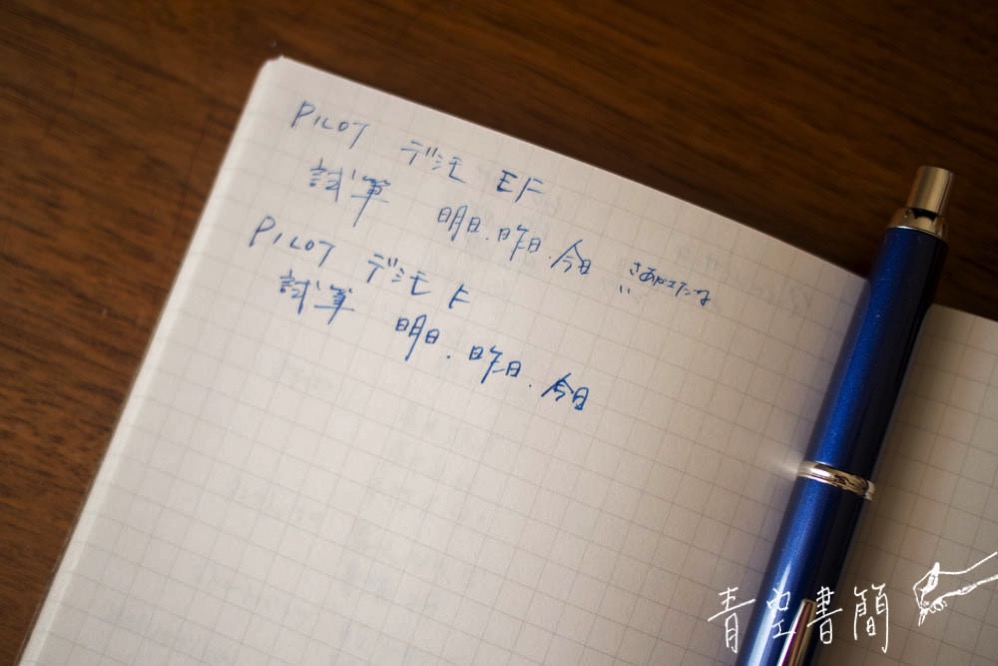 PILOT デシモ EF
試筆 明日.昨日.今日
PILOT デシモ F
試筆 明日.昨日.今日
青空書簡